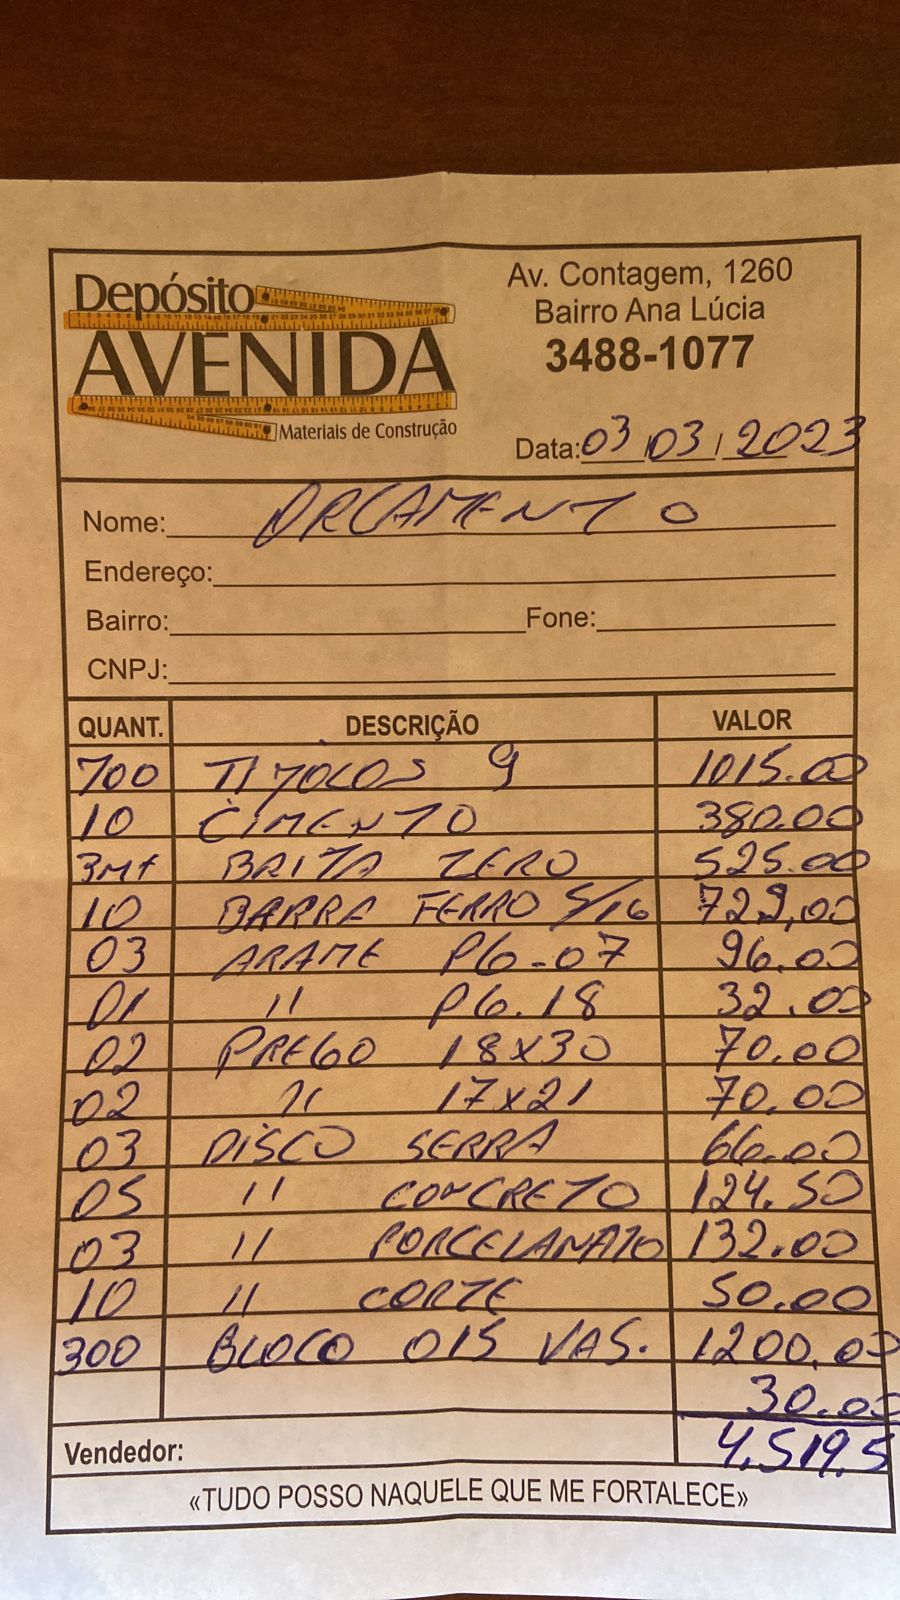 Depósito
AVENIDA
Materiais de Construção
Av. Contagem, 1260
Bairro Ana Lúcia
3488-1077
Data: 03/03/2023
Nome: ORCAMENTO
Endereço:
Bairro: Fone:
CNPJ:
QUANT. DESCRIÇÃO VALOR
700 TIJOLOS 9 1015.00
10 CIMENTO 380.00
3Mt BRITA ZERO 525.00
10 BARRA FERRO 5/16 729,00
03 ARAME PG-07 96.00
01 " PG.18 32.00
02 PREGO 18x30 70.00
02 " 17x21 70.00
03 DISCO SERRA 66.00
05 " CONCRETO 124.50
03 " PORCELANATO 132.00
10 " CORTE 50.00
300 BLOCO 015 VAS. 1200,00
30.00
Vendedor: 4.519,5
«TUDO POSSO NAQUELE QUE ME FORTALECE»